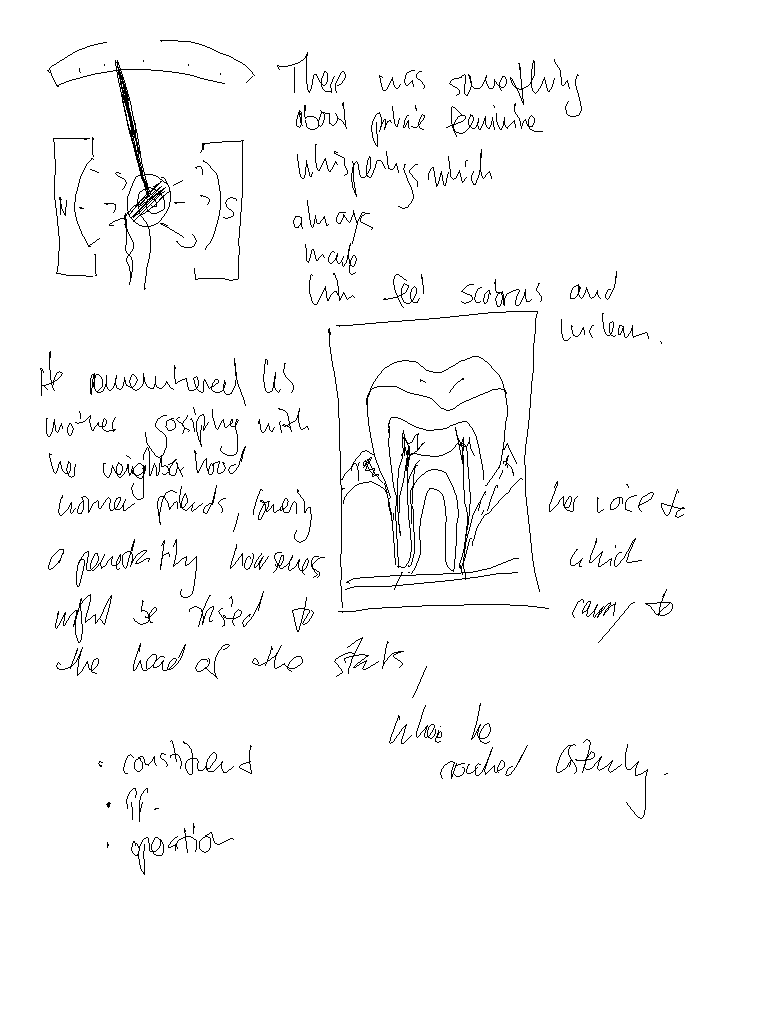 There was something
about private feminine
whisperings which
always
made
him feel scabrous and
unclean.
N S
He remembered his
mother gossiping with
her neighborhood
women friends, lowering her voice to
a penetrating hoarseness which
might be raised to carry to
the head of the stairs,
where he
crouched listening.
• constituent
• pp.
• operation